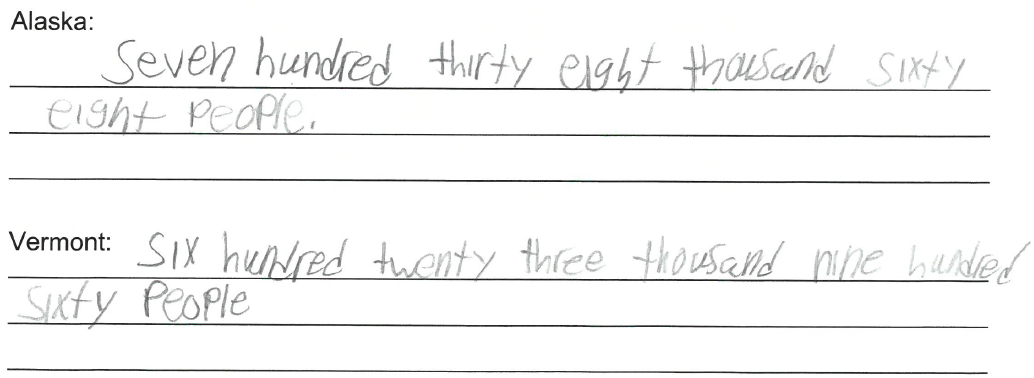 Alaska:
Seven hundred thirty eight thousand sixty
eight people.
Vermont: Six hundred twenty three thousand nine hundred
sixty people